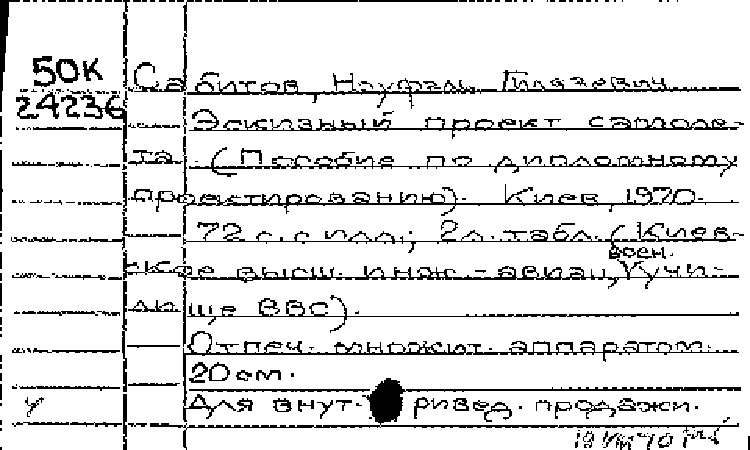 50К Сабитов, Науфаль Гилязевич.
24236 Эскизный проект самоле-
та. (Пособие по дипломному
проектированию). Киев, 1970.
72 с. с илл.; 2 л. табл. (Киев-
воен.
ское высш. инж.-авиац. V учи-
лище ВВС).
Отпеч. множит. аппаратом.
20 см.
Для внут ривед. продажи.